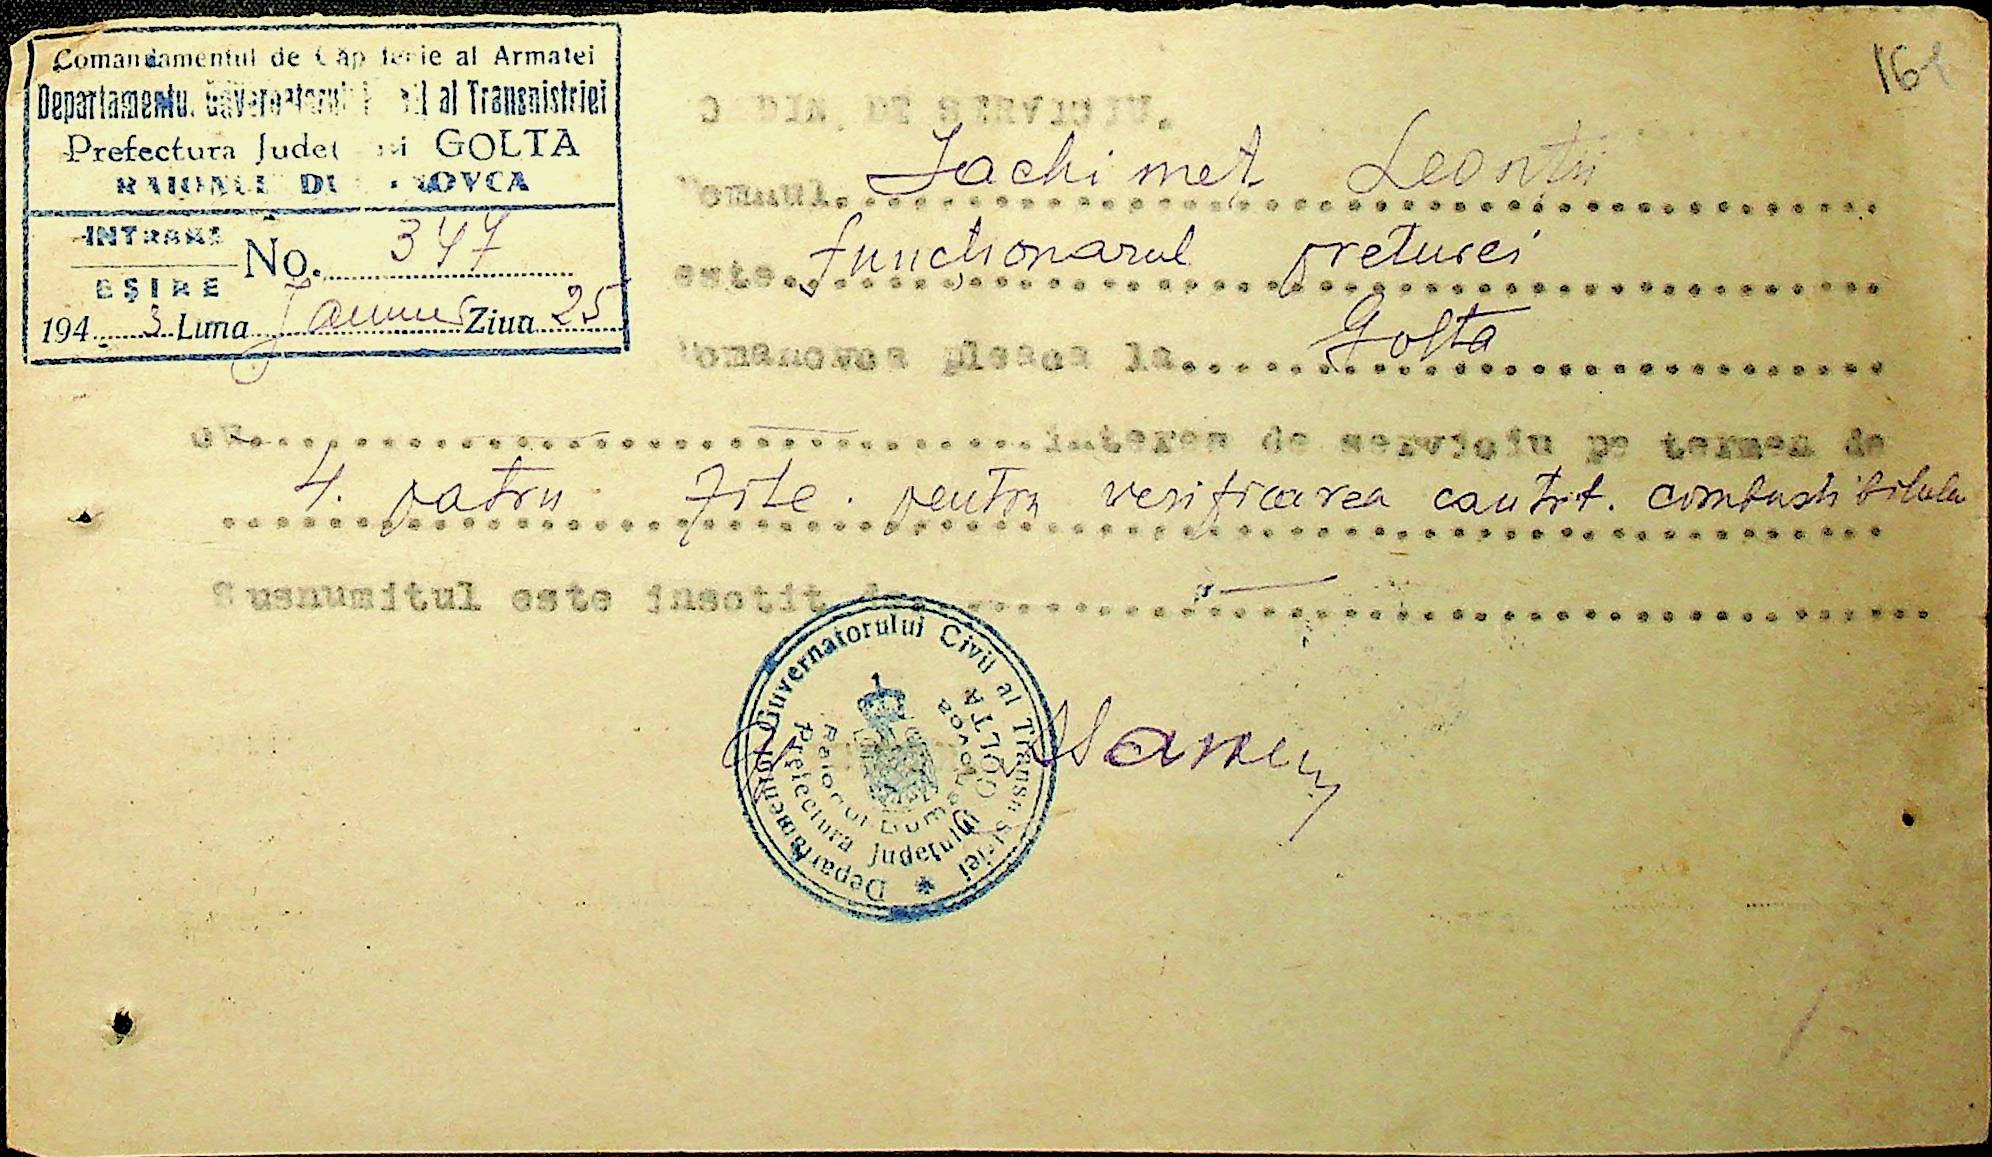 161
Comandamentul de Căp ierie al Armatei
Departamentu. Guvernatorului al Transnistriei
Prefectura Județ ui GOLTA
INTRARE
EȘIRE
No. 347
194 3 Luna Ziua 25
DE SERVICIU.
Iachimet Leontii
este functionarul preturei
la Golta
interes de serviciu pe termen de
4. patru zile. pentru verificarea cantit.
Susnumitul este insotit
Departamentul Guvernatorului Civil al Transnistriei
Prefectura Județului GOLTA
Raionul